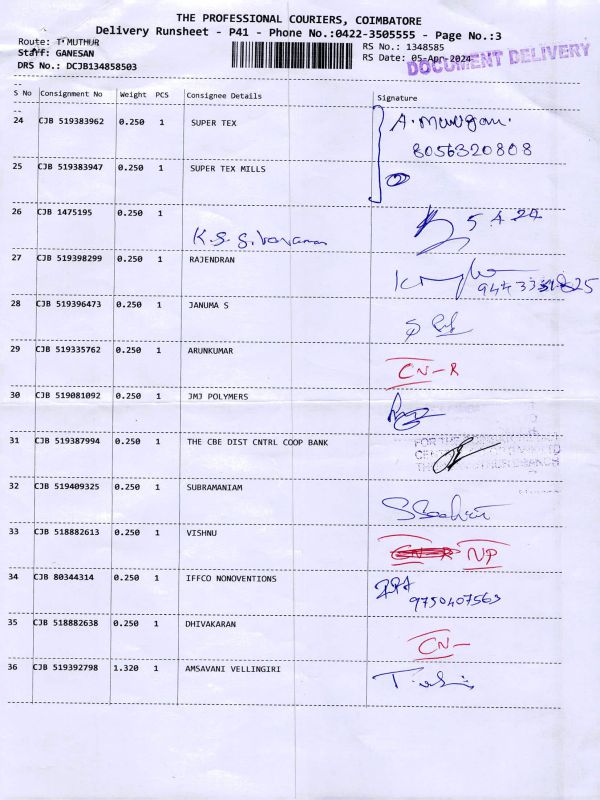 THE PROFESSIONAL COURIERS, COIMBATORE
Delivery Runsheet - P41 - Phone No.:0422-3505555 - Page No.:3
Route: T*MUTHUR
RS No.: 1348585
Staff: GANESAN
RS Date: 05-Apr-2024
DOCUMENT DELIVERY
DRS No.: DCJB134858503
S No Consignment No Weight PCS Consignee Details Signature
24 CJB 519383962 0.250 1 SUPER TEX
8056320808
25 CJB 519383947 0.250 1 SUPER TEX MILLS
26 CJB 1475195 0.250 1 5.4.24
K.S.
27 CJB 519398299 0.250 1 RAJENDRAN
28 CJB 519396473 0.250 1 JANUMA S
29 CJB 519335762 0.250 1 ARUNKUMAR CN-R
30 CJB 519081092 0.250 1 JMJ POLYMERS
31 CJB 519387994 0.250 1 THE CBE DIST CNTRL COOP BANK
FOR THE
32 CJB 519409325 0.250 1 SUBRAMANIAM
33 CJB 518882613 0.250 1 VISHNU NP
34 CJB 80344314 0.250 1 IFFCO NONOVENTIONS
9750407563
35 CJB 518882638 0.250 1 DHIVAKARAN CN-
36 CJB 519392798 1.320 1 AMSAVANI VELLINGIRI